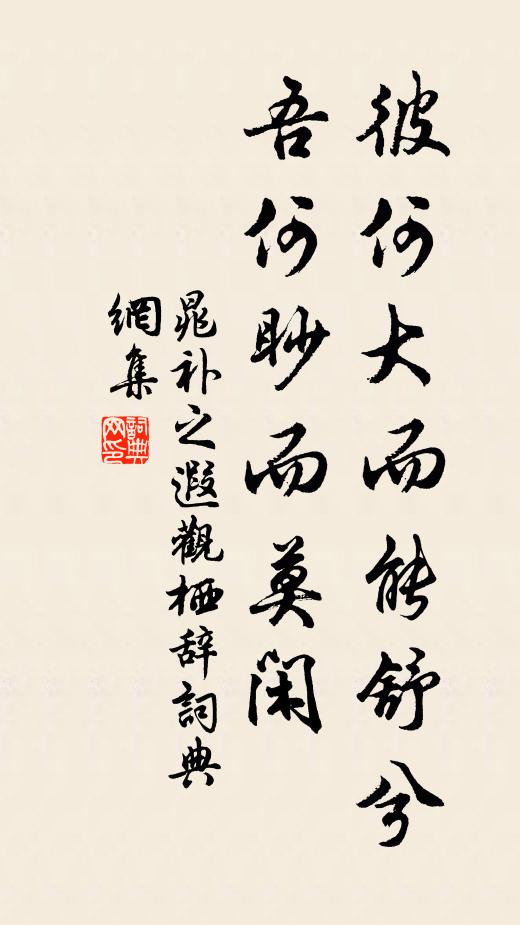 彼何大而能舒兮
吾何眇而莫闲
晁补之遐觀栖辞詞典
網集
詞典
网印